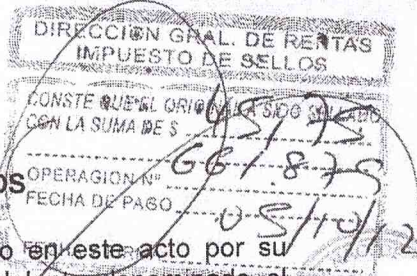 DIRECCIÓN GRAL. DE RENTAS
IMPUESTO DE SELLOS
CONSTE QUE EL ORIGINAL HA SIDO SELLADO
CON LA SUMA DE $ 45,75
OPERACION Nº 661.879
OS
FECHA DE PAGO 05/10/12
o en este acto por su